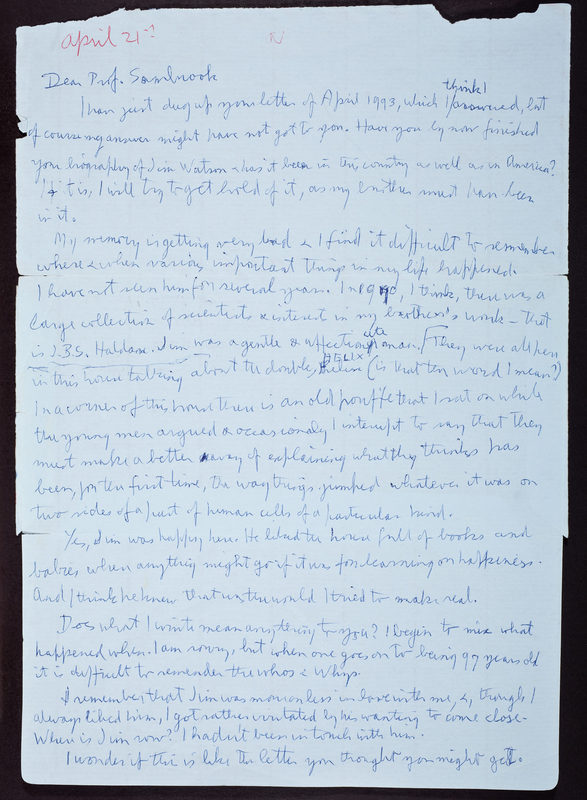 April 21st
Dear Prof. Sambrook
think I
I have just dug up your letter of April 1993, which I answered, but
of course my answer might have not got to you. Have you by now finished
your biography of Jim Watson & has it been in this country as well as in America?
If it is, I will try to get hold of it, as my brother must have been
in it.
My memory is getting very bad & I find it difficult to remember
where & when various important things in my life happened.
I have not seen him for several years. In 19 0, I think, there was a
large collection of scientists & interest in my brother's work – that
is J.B.S. Haldane. Jim was a gentle & affectionate man. They were all here
in this house talking about the double HELIX (is that the word I mean?)
In a corner of this house there is an old pouffe that I sat on while
the young men argued & occasionally I interrupt to say that they
must make a better way of explaining what they thinks has
been, for the first time, the way things jumped whatever it was on
two sides of a part of human cells of a particular kind.
Yes, Jim was happy here. He liked the house full of books and
babies when anything might go if it was for learning or happiness.
And I think he knew that was the world I tried to make real.
Does what I write mean anything to you? I begin to mix what
happened when. I am sorry, but when one goes on to being 97 years old
it is difficult to remember the whos & whys.
I remember that Jim was more or less in love with me, &, though I
always liked him, I got rather irritated by his wanting to come close.
Where is Jim now? I hadn't been in touch with him.
I wonder if this is like the letter you thought you might get.